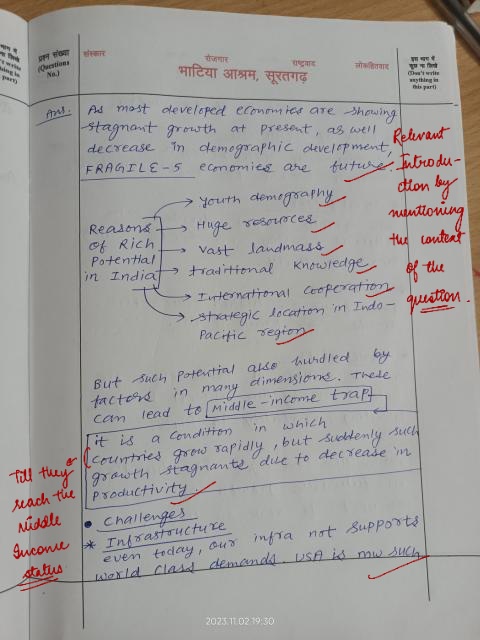 भाग में
न लिखें
n't write
thing in
part)
प्रश्न संख्या
(Questions
No.)
संस्कार
रोजगार
राष्ट्रवाद
लोकहितवाद
भाटिया आश्रम, सूरतगढ़
इस भाग में
कुछ ना लिखें
(Don't write
anything in
this part)
Ans.
As most developed economies are showing
stagnant growth at present, as well
decrease in demographic development,
FRAGILE-5 economies are future.
Relevant
Introdu-
ction by
mentioning
the context
of the
question.
Reasons
Of Rich
Potential
in India
Youth demography
Huge resources
Vast landmass
traditional Knowledge
International Cooperation
Strategic location in Indo-
Pacific region
But such Potential also hurdled by
factors in many dimensions. These
can lead to Middle-income trap
it is a condition in which
countries grow rapidly, but suddenly such
growth stagnants due to decrease in
Productivity
Till they
reach the
Middle
Income
status
• Challenges
* Infrastructure
even today, our infra not supports
world class demands. USA is mw such
2023.11.02 19:30